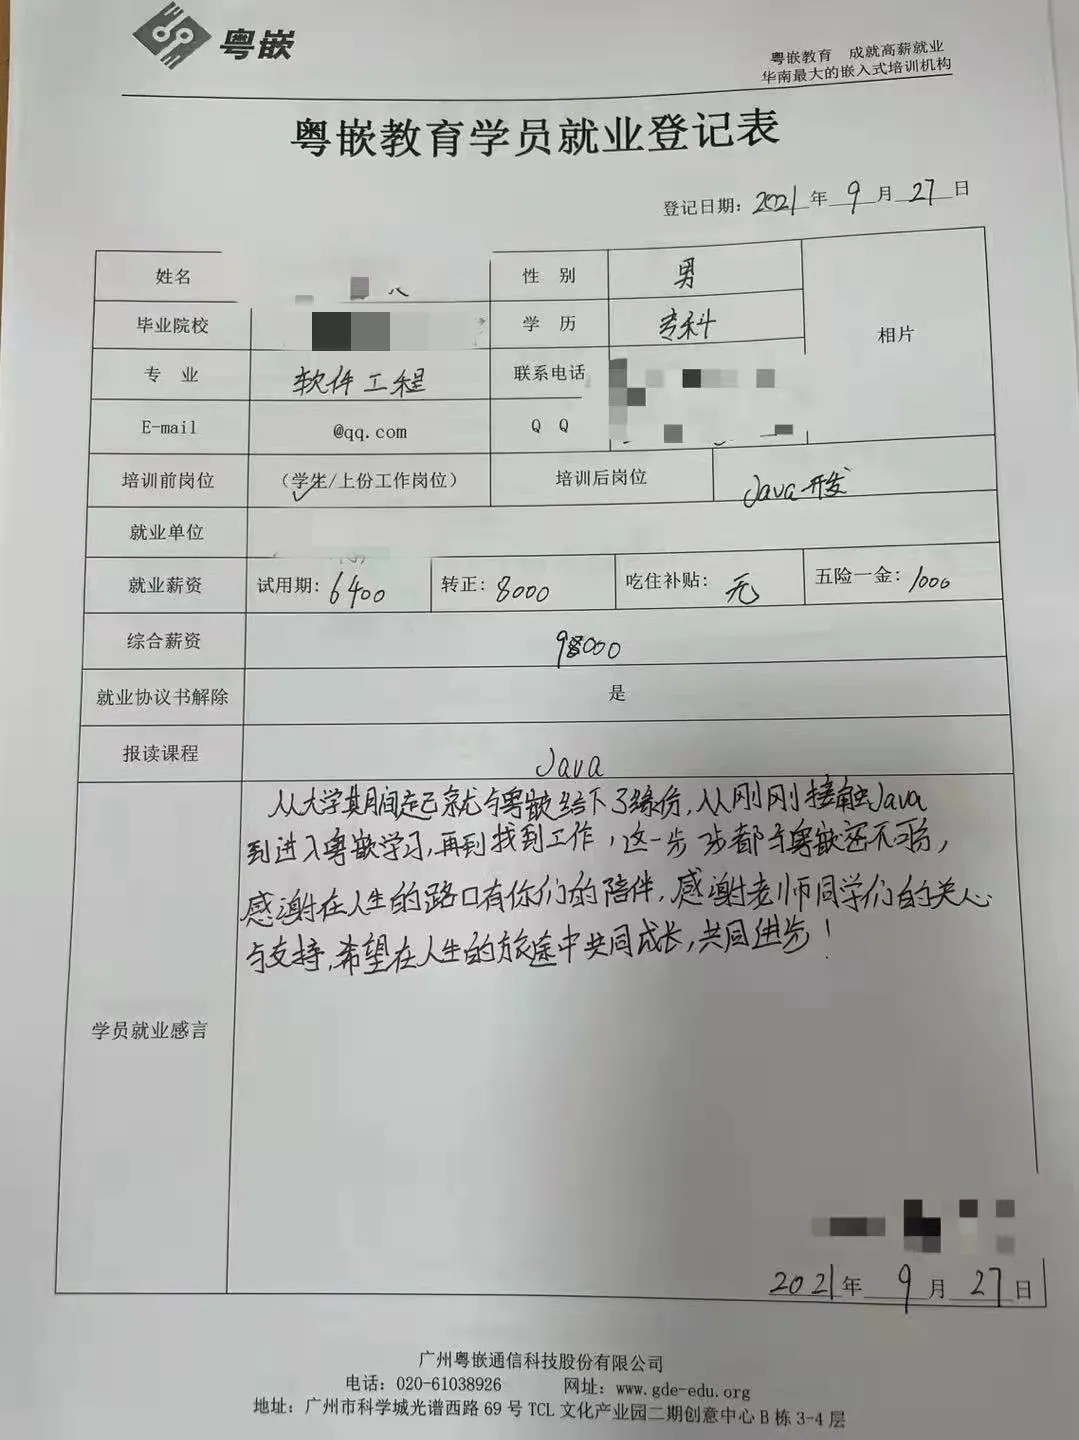 粤嵌
粤嵌教育 成就高薪就业
华南最大的嵌入式培训机构
粤嵌教育学员就业登记表
登记日期：2021年9月27日
姓名 性 别 男
毕业院校 学 历 专科 相片
专 业 软件工程 联系电话
E-mail @qq.com Q Q
培训前岗位 （学生/上份工作岗位） 培训后岗位 Java开发
就业单位
就业薪资 试用期：6400 转正：8000 吃住补贴：无 五险一金：1000
综合薪资
就业协议书解除 是
报读课程 Java
从大学其期间起已就与粤嵌结下了缘份，从刚刚接触Java
到进入粤嵌学习，再到找到工作，这一步步都与粤嵌密不可分，
感谢在人生的路口有你们的陪伴，感谢老师同学们的关心
与支持，希望在人生的旅途中共同成长，共同进步！
学员就业感言
2021年9月27日
广州粤嵌通信科技股份有限公司
电话：020-61038926 网址：www.gde-edu.org
地址：广州市科学城光谱西路69号TCL文化产业园二期创意中心B栋3-4层